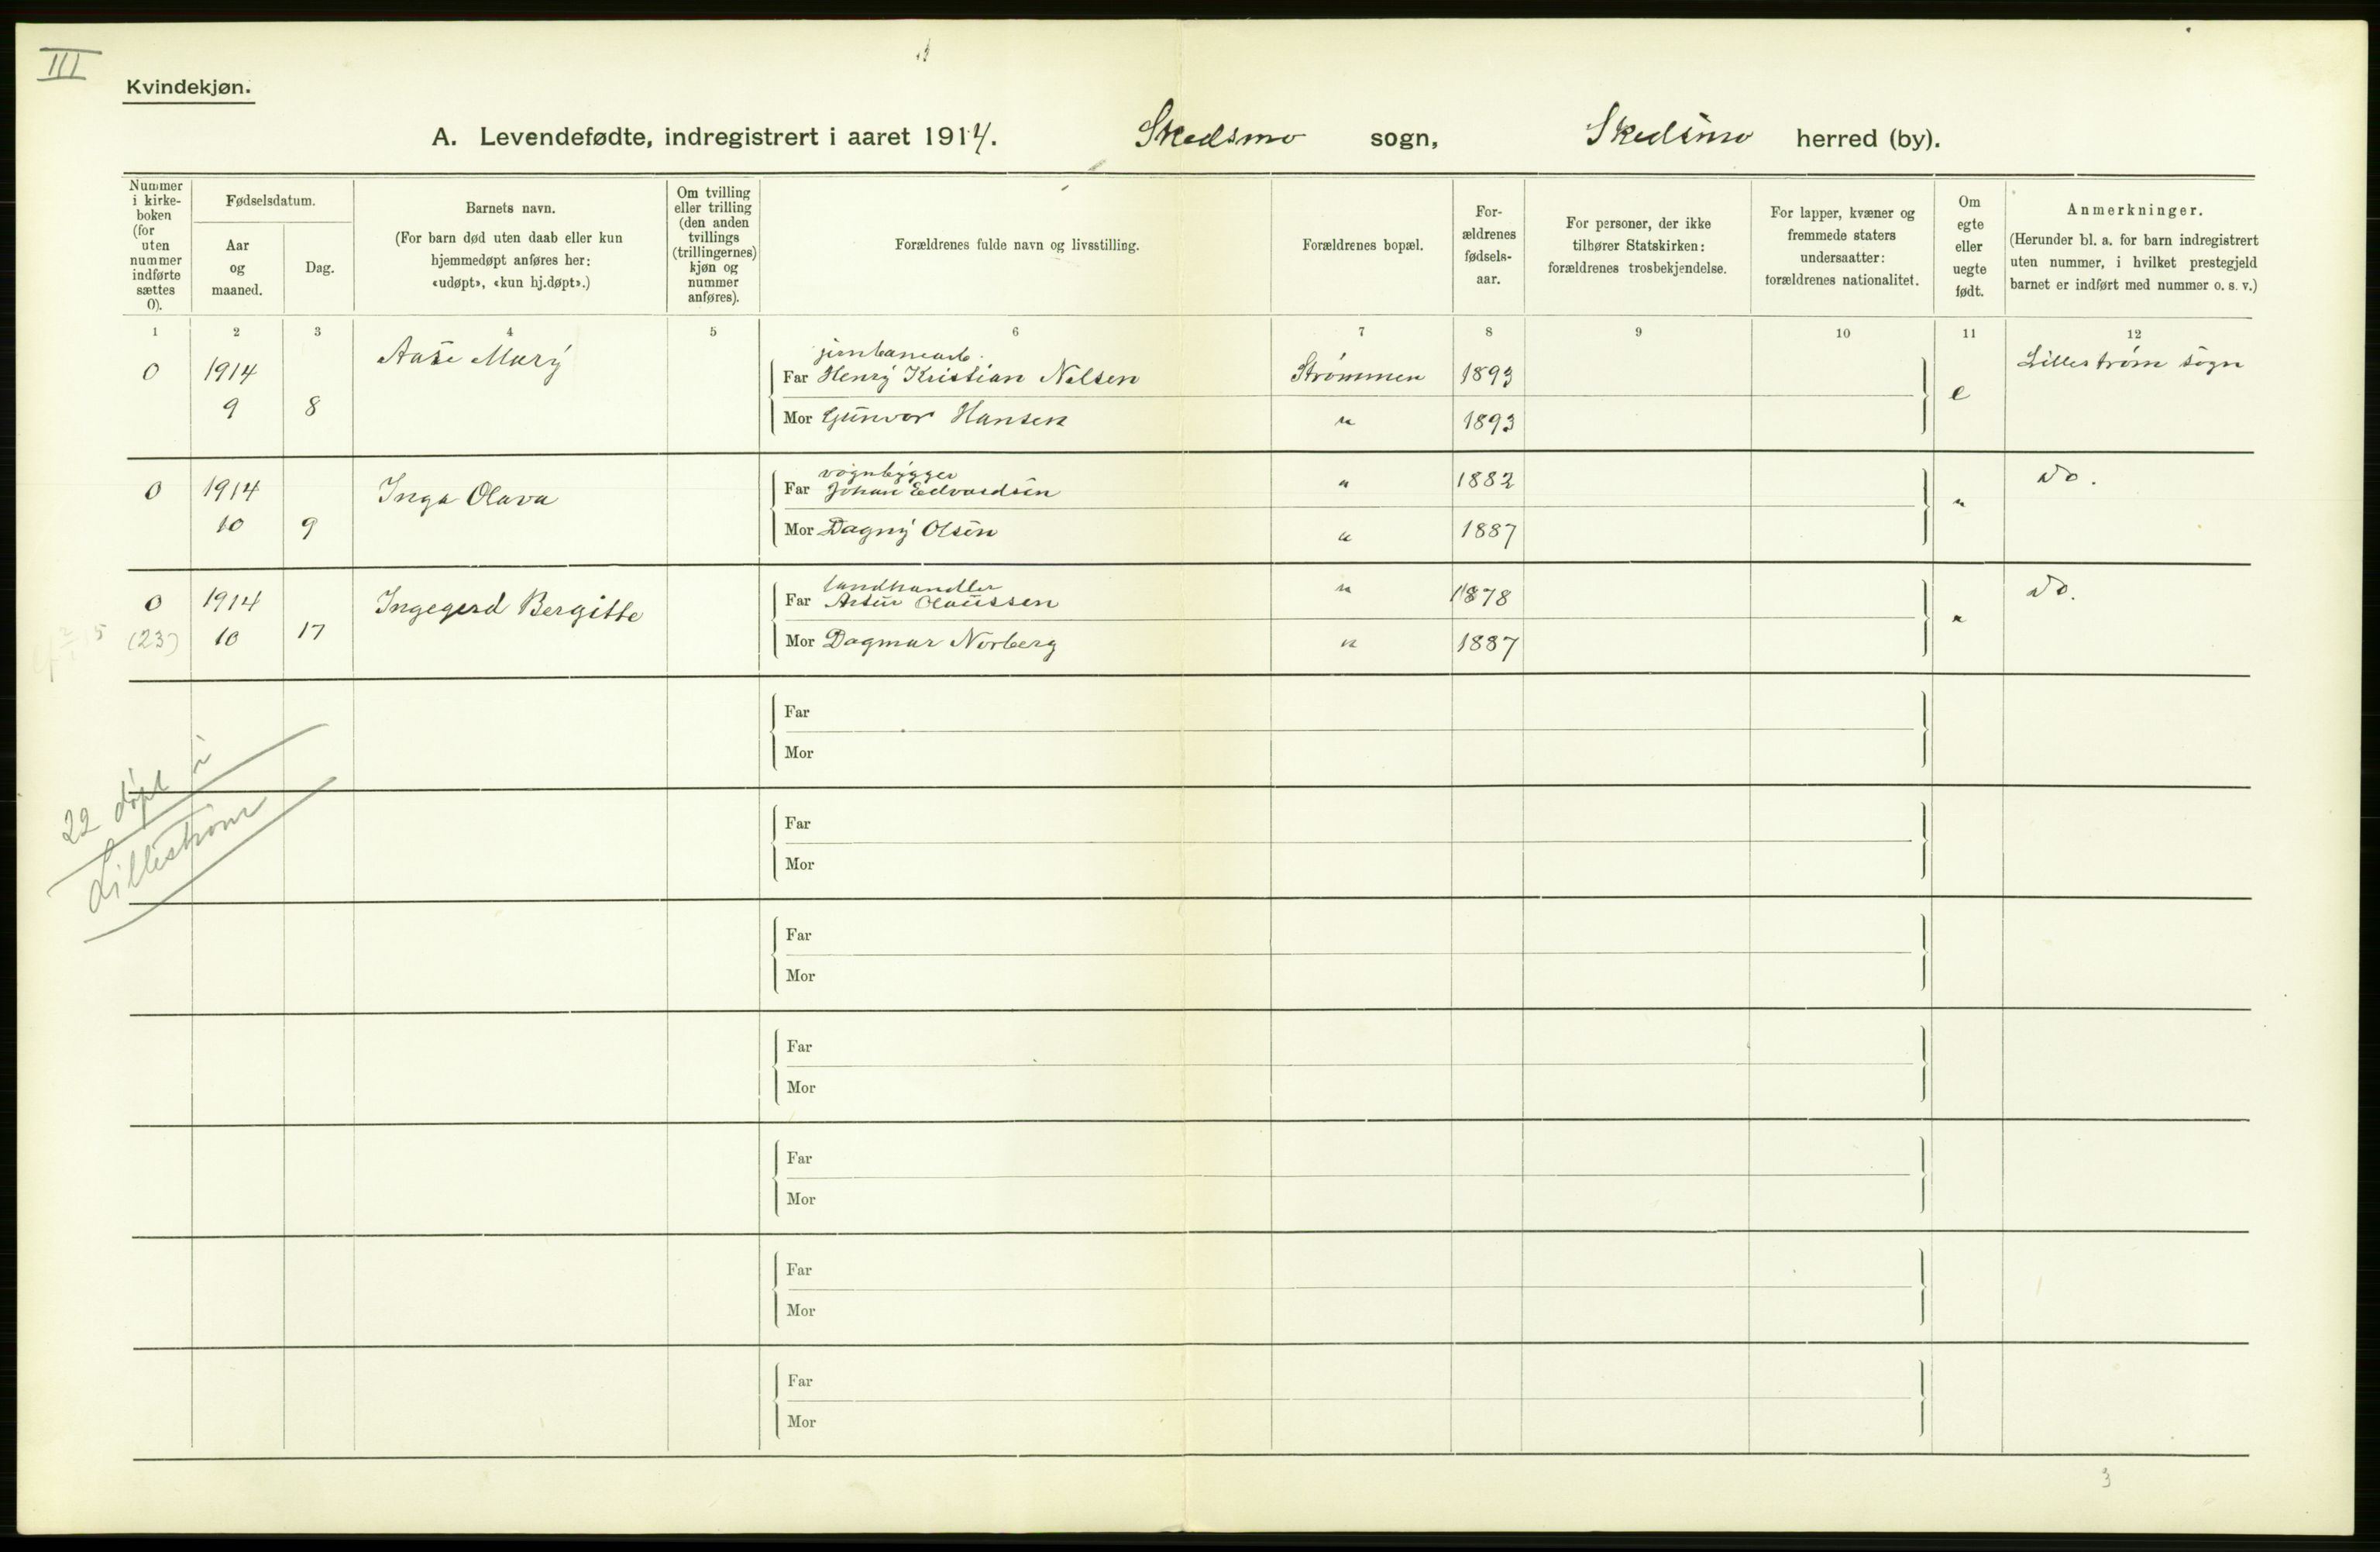 III
Kvindekjøn.
A. Levendefødte, indregistrert i aaret 1914. Skedsmo sogn, Skedsmo herred (by).
Nummer
i kirke-
boken
(for
uten
nummer
indførte
sættes
0).
Fødselsdatum.
Aar
og
maaned.
Dag.
Barnets navn.
(For barn død uten daab eller kun
hjemmedøpt anføres her:
«udøpt», «kun hj.døpt».)
Om tvilling
eller trilling
(den anden
tvillings
(trillingernes)
kjøn og
nummer
anføres).
Forældrenes fulde navn og livsstilling.
Forældrenes bopæl.
For-
ældrenes
fødsels-
aar.
For personer, der ikke
tilhører Statskirken:
forældrenes trosbekjendelse.
For lapper, kvæner og
fremmede staters
undersaatter:
forældrenes nationalitet.
Om
egte
eller
uegte
født.
Anmerkninger.
(Herunder bl. a. for barn indregistrert
uten nummer, i hvilket prestegjeld
barnet er indført med nummer o. s. v.)
1 2 3 4 5 6 7 8 9 10 11 12
jernbanearb.
0 1914 Aase Mary Far Henry Kristian Nelsen Strømmen 1893 Lillestrøm sogn
9 8 Mor Gunvor Hansen " 1893 e
vognbygger
0 1914 Inga Olava Far Johan Edvardsen " 1882 " Do.
10 9 Mor Dagny Olsen " 1887
landhandler
0 1914 Ingegerd Bergitte Far Artur Olaussen " 1878 " Do.
(23) 10 17 Mor Dagmar Norberg " 1887
Far
Mor
22 døpt i
Lillestrøm
Far
Mor
Far
Mor
Far
Mor
Far
Mor
Far
Mor
Far
Mor
3